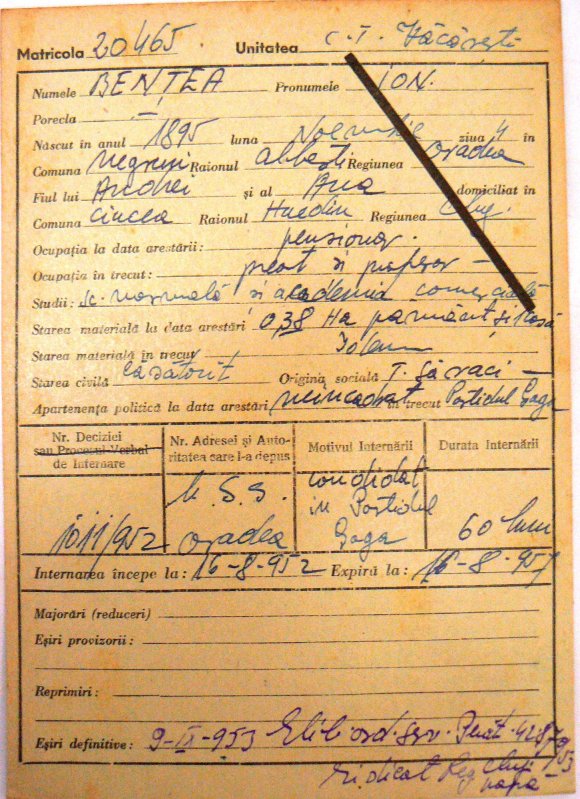 Matricola 20465 Unitatea C. I. Văcărești
Numele BENȚEA Pronumele ION.
Porecla —
Născut în anul 1895 luna Noembrie ziua 4 în
Comuna Negreni Raionul Raionul Regiunea Oradea
Fiul lui Andrei și al Ana domiciliat în
Comuna Ciucea Raionul Huedin Regiunea Cluj.
Ocupația la data arestării: pensionar.
Ocupația în trecut: preot și profesor —
Studii: șc. normală și academia comercială
Starea materială la data arestări 0,38 Ha pământ și casă
Starea materială în trecut Idem
Starea civilă căsătorit Origina socială T. săraci —
Apartenența politică la data arestări neîncadrat în trecut Partidul Goga
Nr. Deciziei sau Procesul Verbal de Internare
Nr. Adresei și Autoritatea care l-a depus
Motivul Internării
Durata Internării
1011/952
M. S. S. Oradea
candidat în Partidul Goga
60 luni
Internarea începe la: 16-8-952 Expiră la: 16-8-957
Majorări (reduceri)
Eșiri provizorii:
Reprimiri:
Eșiri definitive: 9-II-953 Elib. ord.
Ridicat Reg. Cluj